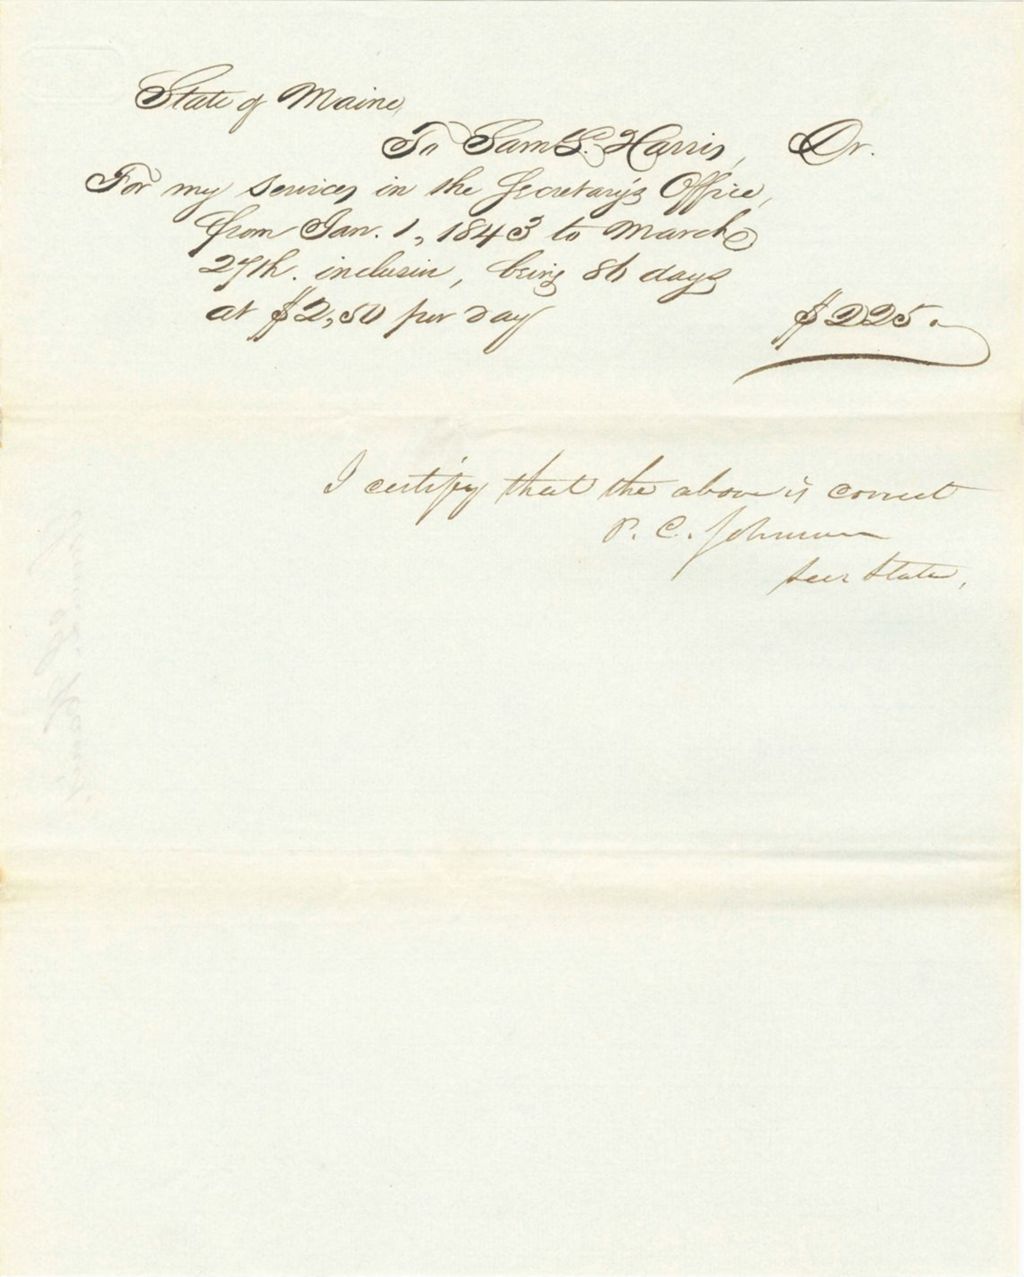 State of Maine
To Saml L. Harris, Dr.
For my services in the Secretary's Office,
from Jan. 1, 1843 to March
27th. inclusive, being 86 days
at $2,50 per day $225.
I certify that the above is correct
P. C. Johnson
Secr State,